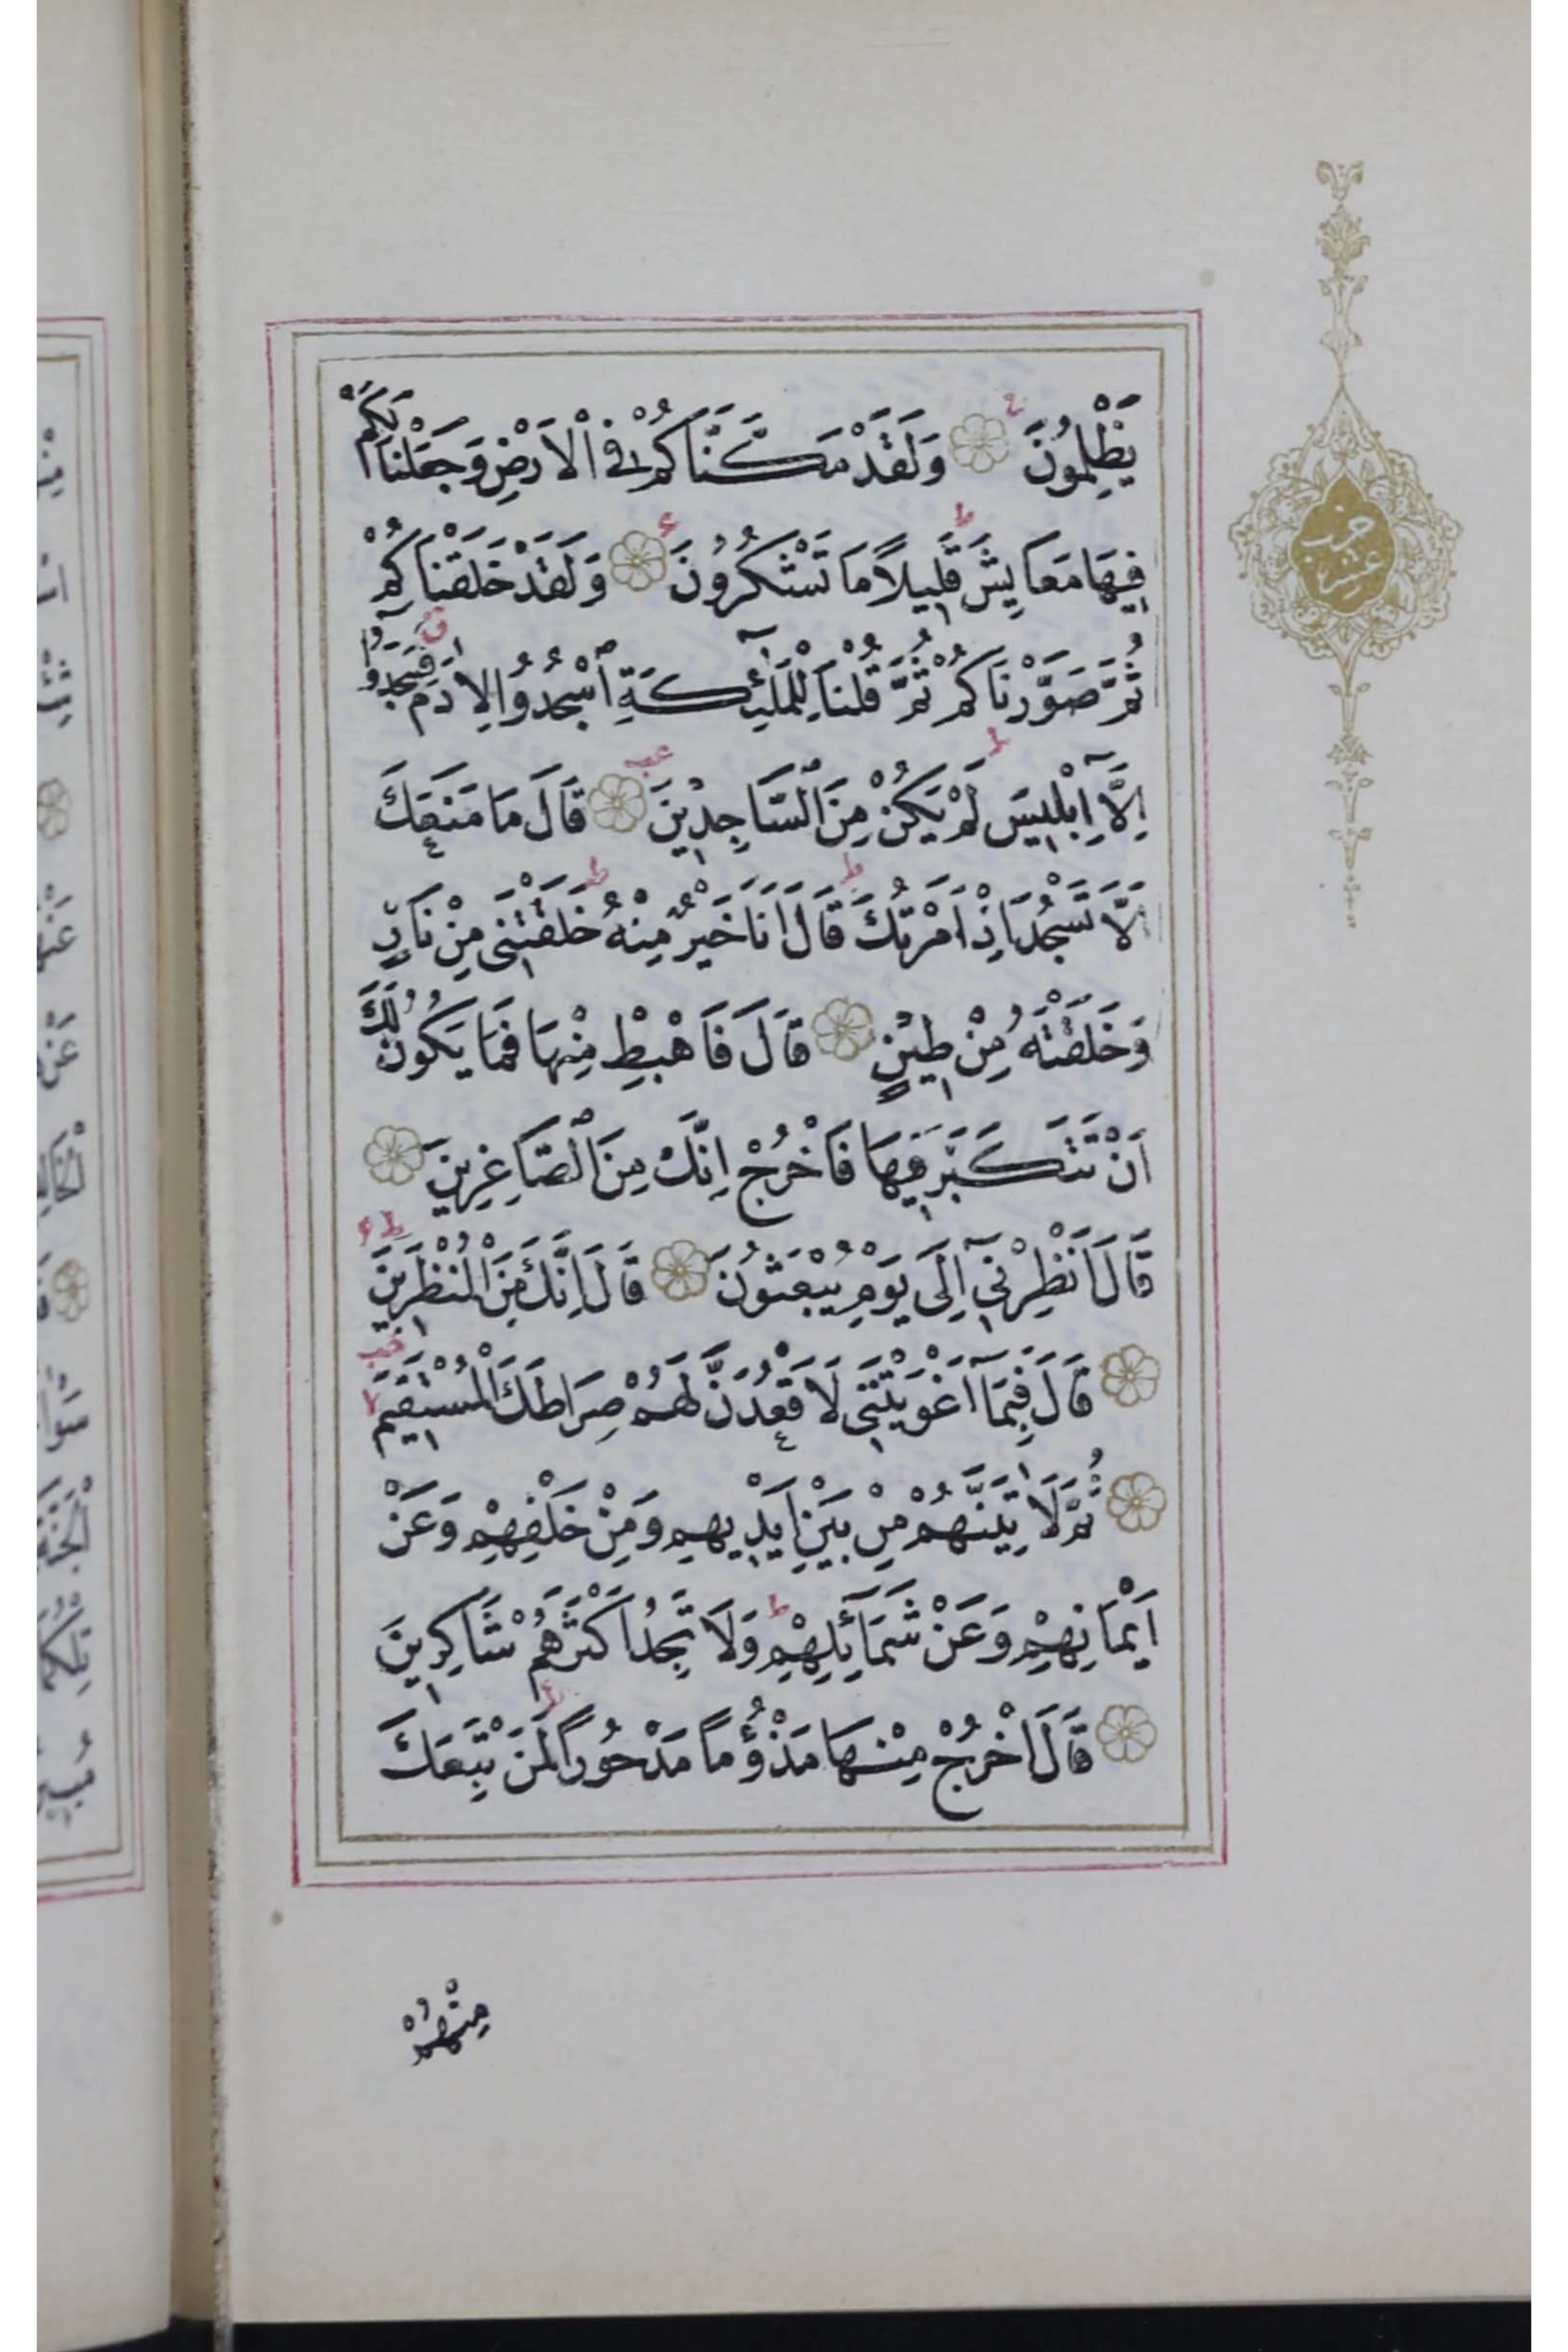 يَظْلِمُونَ وَلَقَدْ مَكَّنَّاكُمْ فِي الْاَرْضِ وَجَعَلْنَا لَكُمْ
فِيهَا مَعَايِشَ قَلِيلاً مَا تَشْكُرُونَ وَلَقَدْ خَلَقْنَاكُمْ
ثُمَّ صَوَّرْنَاكُمْ ثُمَّ قُلْنَا لِلْمَلٰٓئِكَةِ اسْجُدُوا لِاٰدَمَ فَسَجَدُٓوا
اِلَّٓا اِبْلِيسَ لَمْ يَكُنْ مِنَ السَّاجِدِينَ قَالَ مَا مَنَعَكَ
اَلَّا تَسْجُدَ اِذْ اَمَرْتُكَ قَالَ اَنَا خَيْرٌ مِنْهُ خَلَقْتَنِي مِنْ نَارٍ
وَخَلَقْتَهُ مِنْ طِينٍ قَالَ فَاهْبِطْ مِنْهَا فَمَا يَكُونُ لَكَ
اَنْ تَتَكَبَّرَ فِيهَا فَاخْرُجْ اِنَّكَ مِنَ الصَّاغِرِينَ
قَالَ اَنْظِرْنِٓي اِلَى يَوْمِ يُبْعَثُونَ قَالَ اِنَّكَ مِنَ الْمُنْظَرِينَ
قَالَ فَبِمَٓا اَغْوَيْتَنِي لَاَقْعُدَنَّ لَهُمْ صِرَاطَكَ الْمُسْتَقِيمَ
ثُمَّ لَاٰتِيَنَّهُمْ مِنْ بَيْنِ اَيْدِيهِمْ وَمِنْ خَلْفِهِمْ وَعَنْ
اَيْمَانِهِمْ وَعَنْ شَمَٓائِلِهِمْ وَلَا تَجِدُ اَكْثَرَهُمْ شَاكِرِينَ
قَالَ اخْرُجْ مِنْهَا مَذْؤُمًا مَدْحُورًا لَمَنْ تَبِعَكَ
مِنْهُمْ
حزب
عشرين